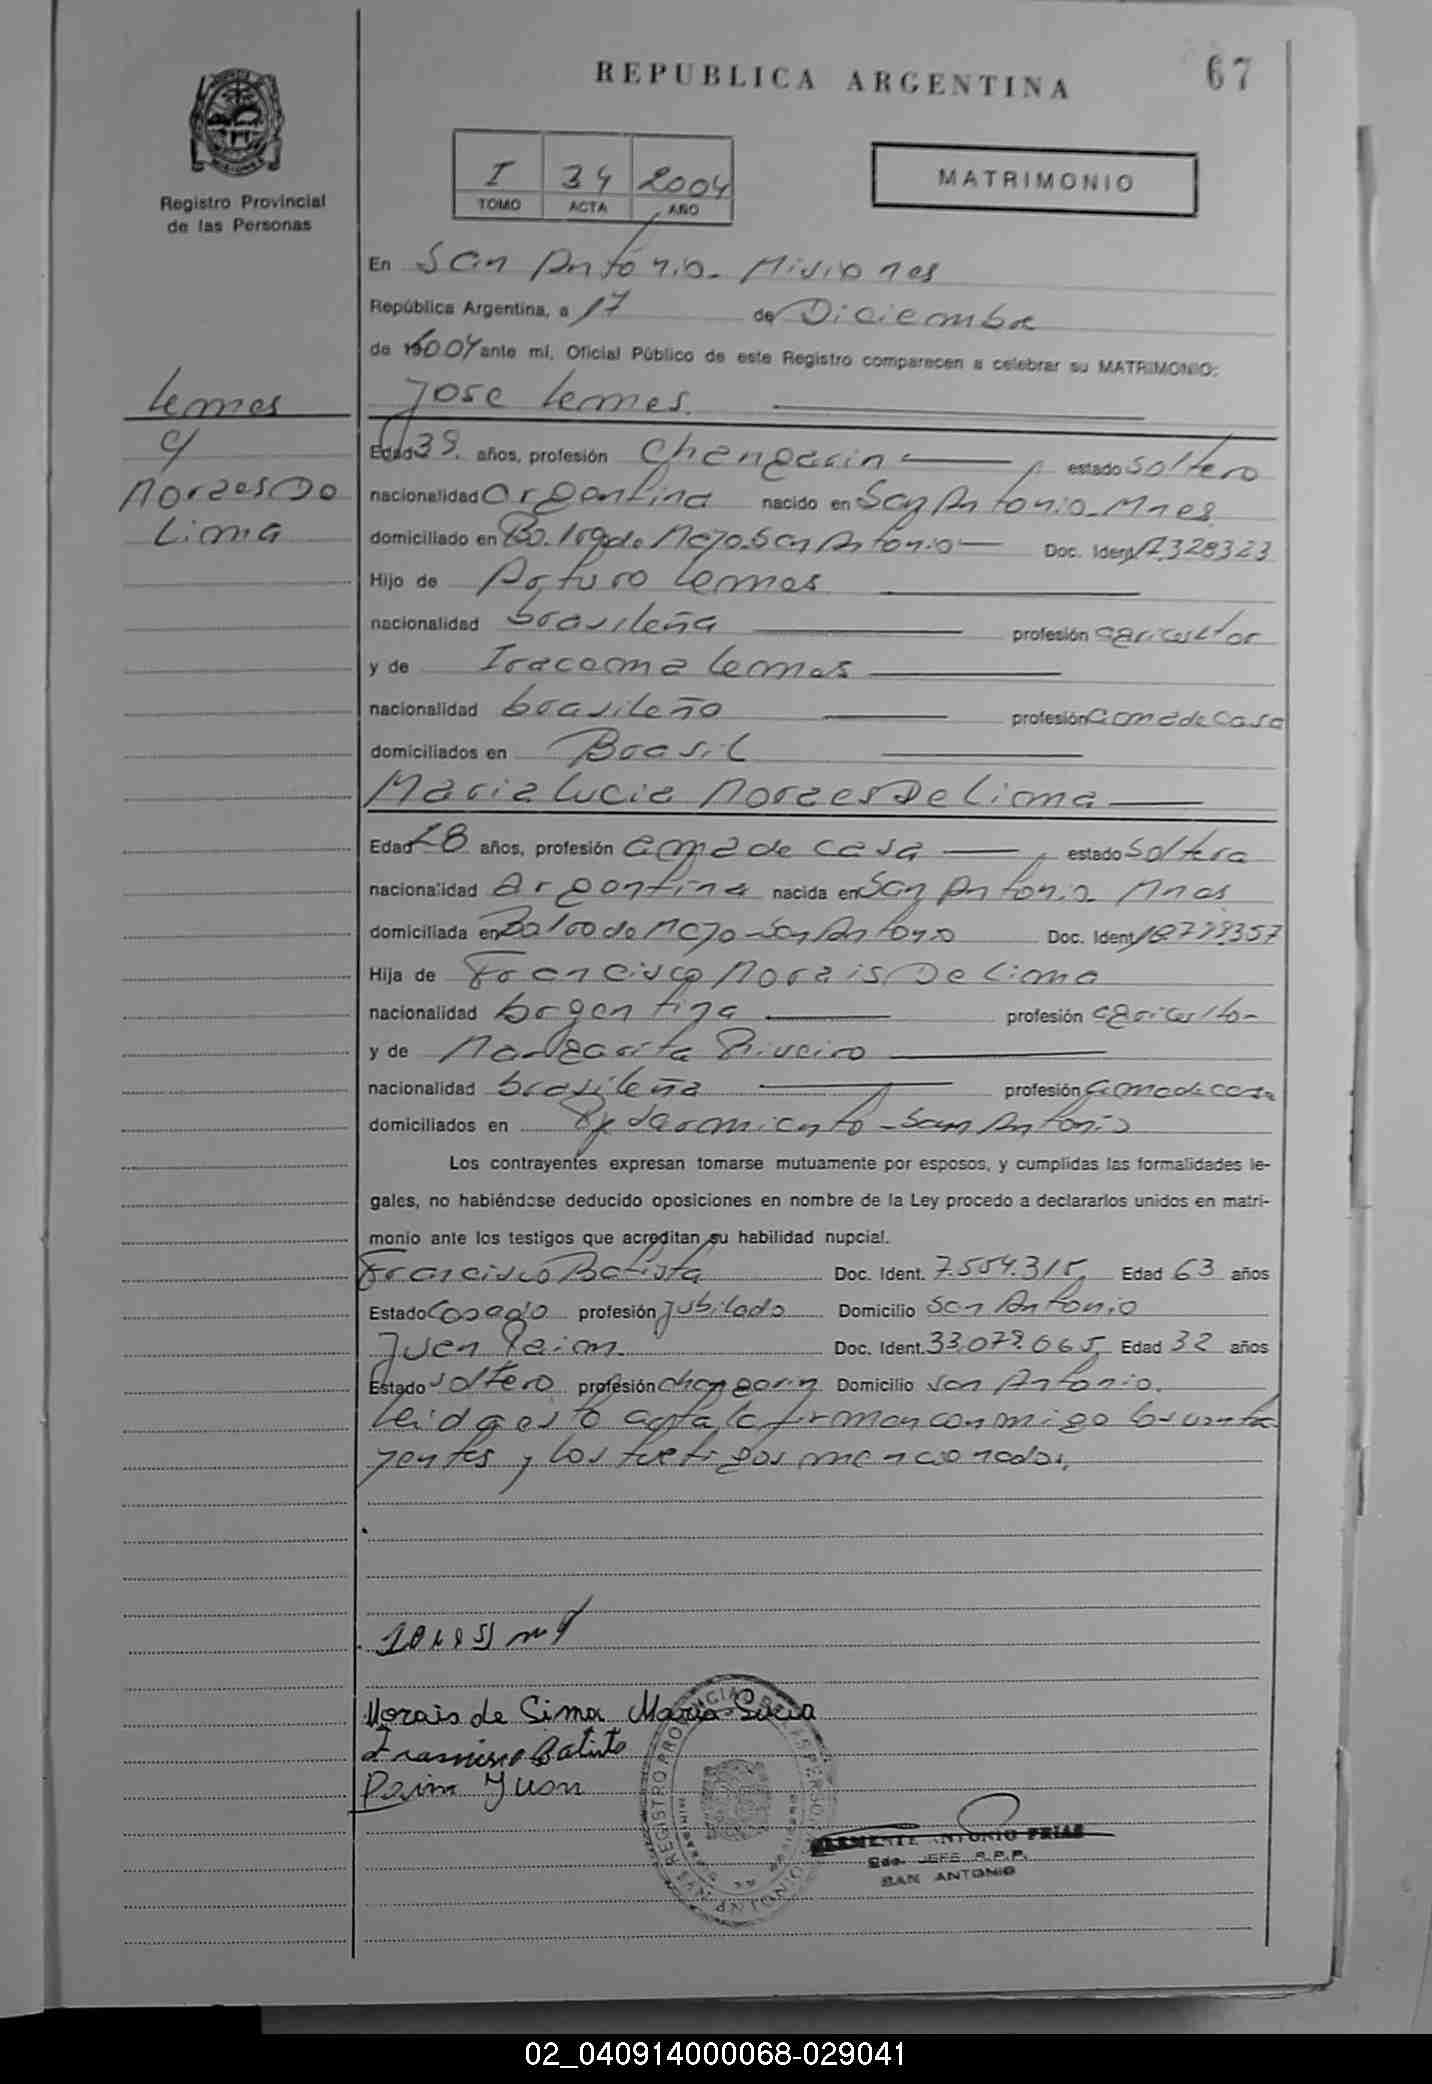 REPUBLICA ARGENTINA
67
Registro Provincial
de las Personas
I 34 2004
TOMO ACTA AÑO
MATRIMONIO
En San Antonio - Misiones
República Argentina, a 17 de Diciembre
de 2004 ante mí, Oficial Público de este Registro comparecen a celebrar su MATRIMONIO:
Lemes
y
Moraes De
Lima
Jose Lemes.
Edad 39. años, profesión changarin, estado soltero
nacionalidad argentina nacido en San Antonio - Mnes
domiciliado en Bo. 1ro de Mayo - San Antonio Doc. Ident. 17.328323
Hijo de Arturo Lemes
nacionalidad brasileña profesión agricultor
y de Iracema Lemes
nacionalidad brasileño profesión ama de casa
domiciliados en Brasil
Maria Lucia Moraes De Lima
Edad 28 años, profesión ama de casa, estado soltera
nacionalidad Argentina nacida en San Antonio - Mnes
domiciliada en Bo 1ro de Mayo - San Antonio Doc. Ident. 18.799357
Hija de Francisco Morais De Lima
nacionalidad profesión agricultor
y de Margarita Riveiro
nacionalidad brasileña profesión ama de casa
domiciliados en - San Antonio
Los contrayentes expresan tomarse mutuamente por esposos, y cumplidas las formalidades le-
gales, no habiéndose deducido oposiciones en nombre de la Ley procedo a declararlos unidos en matri-
monio ante los testigos que acreditan su habilidad nupcial.
Francisco Batista Doc. Ident. 7.554.315 Edad 63 años
Estado casado profesión jubilado Domicilio San Antonio
Juan Paim. Doc. Ident. 33.079.065 Edad 32 años
Estado soltero profesión changarin Domicilio San Antonio.
Leida esta acta la firman conmigo los contra
yentes y los testigos mencionados.
Morais de Lima Maria Lucia
Francisco Batista
Paim Juan
CLEMENTE ANTONIO FRIAS
JEFE R.P.P.
SAN ANTONIO
02_040914000068-029041